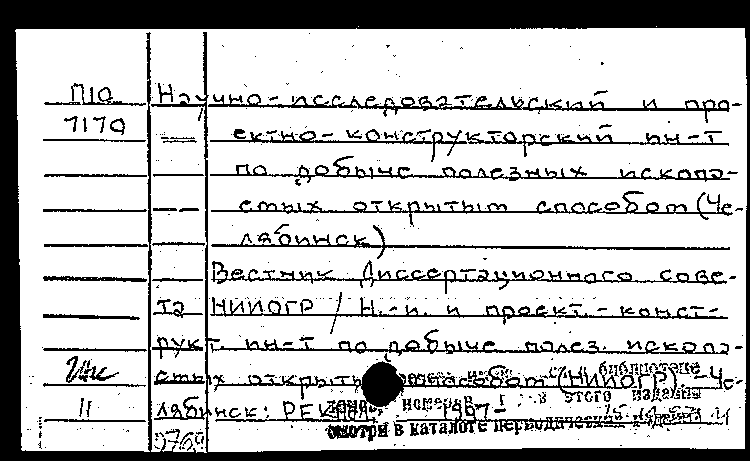 П10 Научно-исследовательский и про-
7170 ектно-конструкторский ин-т
по добыче полезных ископа-
емых открытым способом (Че-
лябинск)
Вестник Диссертационного сове-
та НИИОГР / Н.-и. и проект.-конст-
рукт. ин-т по добыче полез. ископа-
емых открытым способом (НИИОГР). - Че-
11 лябинск: 1997-
библиотеке
номеров в этого издания
смотри в каталоге периодических изданий